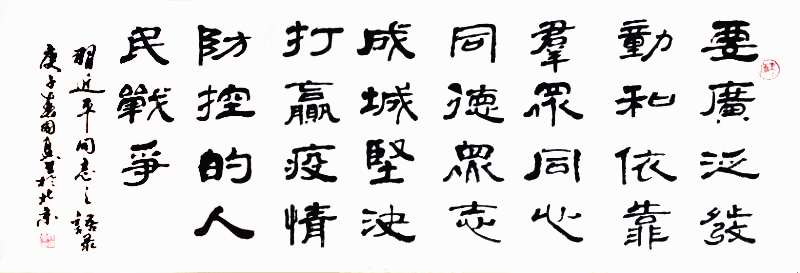 要廣泛發
動和依靠
羣眾同心
同德眾志
成城堅決
打贏疫情
防控的人
民戰爭
習近平同志之語录
庚子春於北京